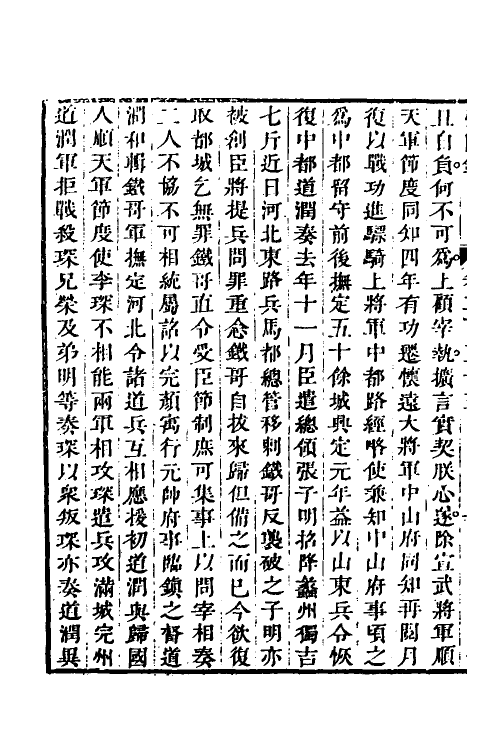 且自負何不可爲上顧宰執攄言實契朕心遂除宣武將軍順
天軍節度同知四年有功遷懷遠大將軍中山府同知再閱月
復以戰功進驃騎上將軍中都路經略使兼知中山府事頃之
爲中都留守前後撫定五十餘城興定元年益以山東兵令恢
復中都道潤奏去年十一月臣遣總領張子明招降蠡州獨吉
七斤近日河北東路兵馬都總管移剌鐵哥反襲破之子明亦
被創臣將提兵問罪重念鐵哥自拔來歸但備之而已今欲復
取都城乞無罪鐵哥直令受臣節制庶可集事上以問宰相奏
二人不協不可相統屬詔以完顏寓行元帥府事臨鎮之督道
潤和輯鐵哥軍撫定河北令諸道兵互相應援初道潤與歸國
人順天軍節度使李琛不相能兩軍相攻琛遣兵攻滿城完州
道潤軍拒戰殺琛兄榮及弟明等奏琛以衆叛琛亦奏道潤與